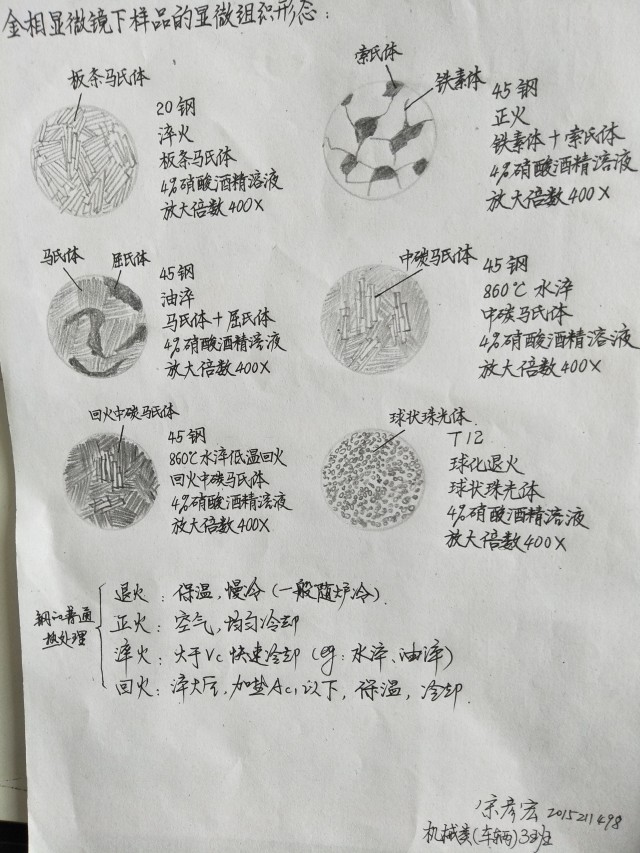 金相显微镜下样品的显微组织形态:
板条马氏体
20钢
淬火
板条马氏体
4%硝酸酒精溶液
放大倍数400X
索氏体
铁素体
45钢
正火
铁素体+索氏体
4%硝酸酒精溶液
放大倍数400X
马氏体
屈氏体
45钢
油淬
马氏体+屈氏体
4%硝酸酒精溶液
放大倍数400X
中碳马氏体
45钢
860℃水淬
中碳马氏体
4%硝酸酒精溶液
放大倍数400X
回火中碳马氏体
45钢
860℃水淬低温回火
回火中碳马氏体
4%硝酸酒精溶液
放大倍数400X
球状珠光体
T12
球化退火
球状珠光体
4%硝酸酒精溶液
放大倍数400X
钢的普通
热处理
退火:保温,慢冷(一般随炉冷).
正火:空气,均匀冷却
淬火:大于Vc快速冷却(eg:水淬、油淬)
回火:淬火后,加热Ac1以下,保温,冷却.
彦宏 2015211498
机械类(车辆)3班